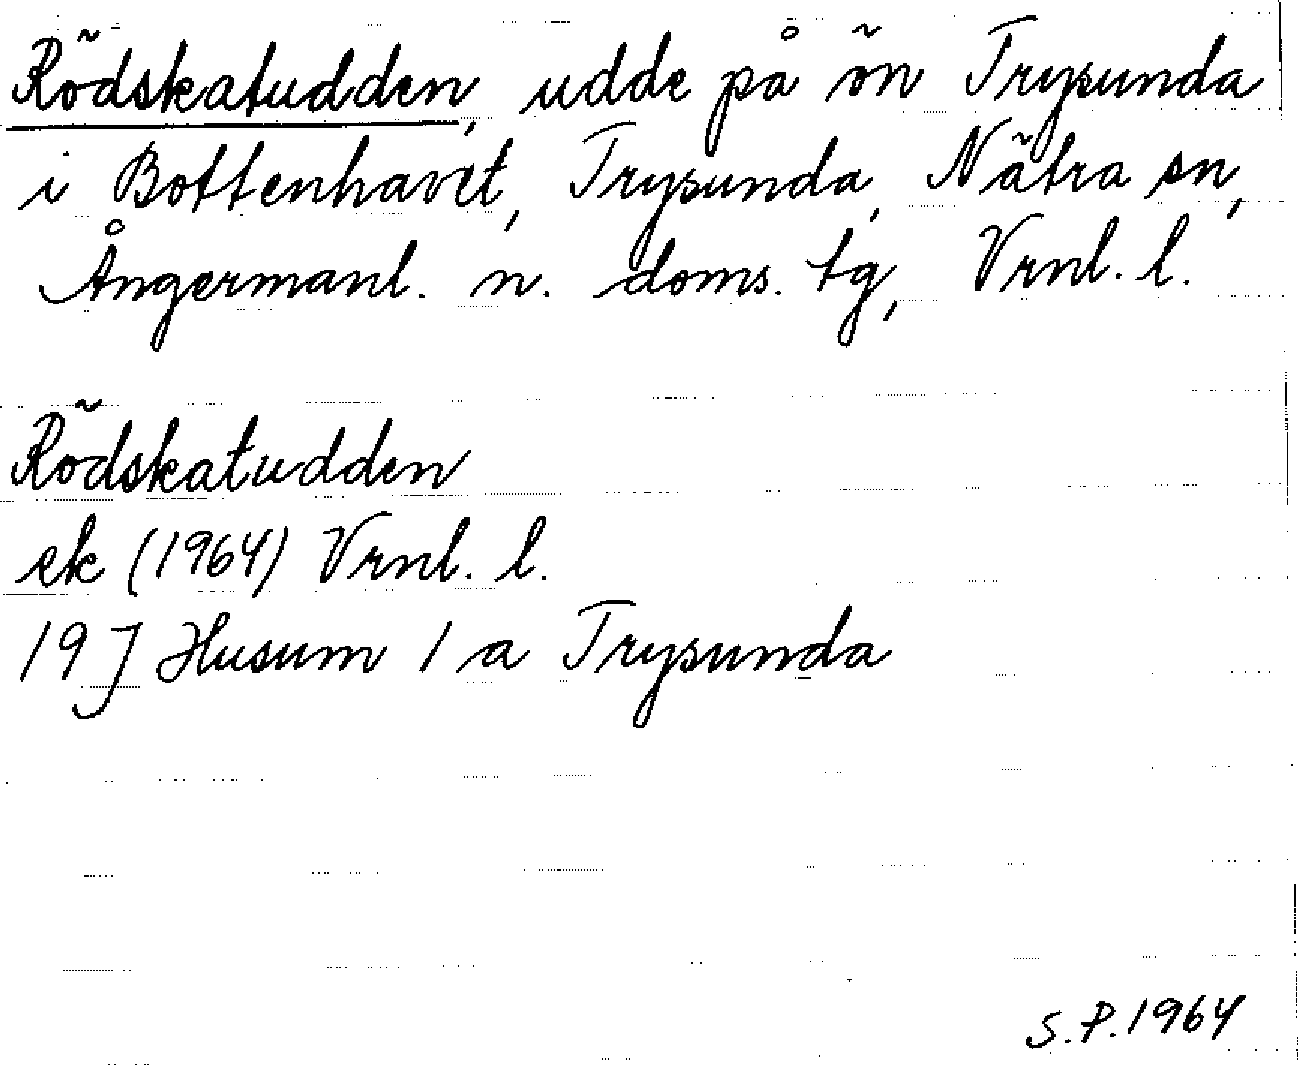 Rödskatudden, udde på ön Trysunda
i Bottenhavet, Trysunda, Nätra sn,
Ångermanl. n. doms. tg, Vrnl. l.
Rödskatudden
ek (1964) Vrnl. l.
19 J Husum 1 a Trysunda
S.P. 1964